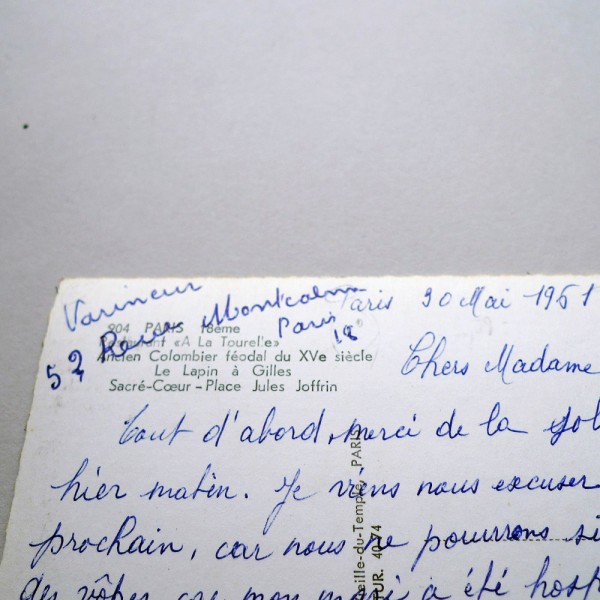 Varineur
52 Rue Montcalm
Paris 18°
Paris 30 Mai 1961
904 PARIS 18ème
Restaurant «A La Tourelle»
Ancien Colombier féodal du XVe siècle
Le Lapin à Gilles
Sacré-Cœur - Place Jules Joffrin
Chers Madame
Tout d'abord, merci de la
hier matin. Je viens nous excuser
prochain, car nous ne pourrons
des vôtres, car mon mari a été
eille-du-Temple, PARIS
TUR. 40-74